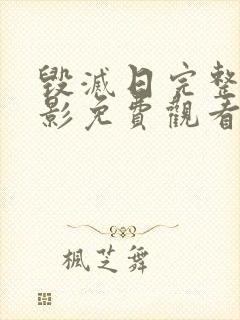 毀滅日完整
影免費觀看
楓芝舞